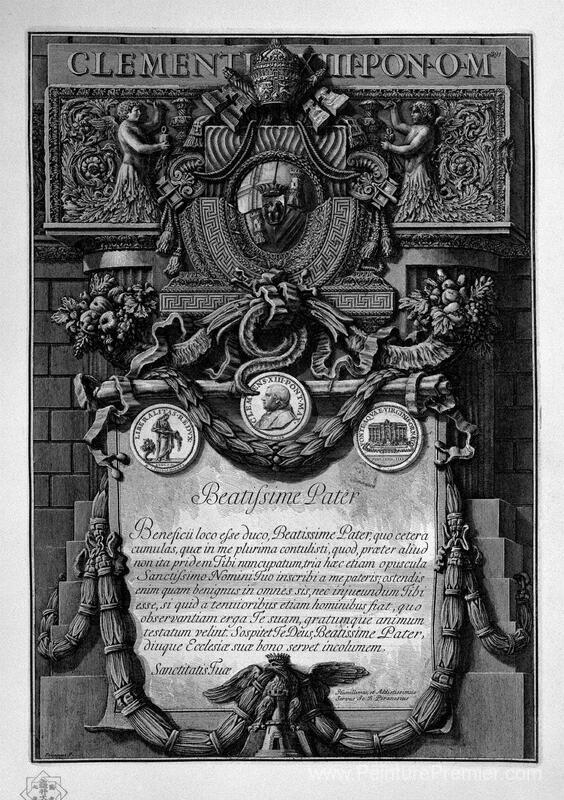 CLEMENTI XIII·PON·O·M
CLEMENS·XIII·PONT·MA
LIBERALITAS·REDUX
Beatiſsime Pater
Beneficii loco eſse duco, Beatissime Pater, quo cetera
cumulas, quæ in me plurima contulisti, quod, præter aliud
non ita pridem Tibi nuncupatum, tria hæc etiam opuscula
Sanctiſsimo Nomini Tuo inscribi a me pateris; ostendis
enim quam benignus in omnes sis, nec injucundum Tibi
esse, si quid a tenuioribus etiam hominibus fiat, quo
observantiam erga Te suam, gratumque animum
testatum velint. Sospitet Te Deus, Beatissime Pater,
diuque Ecclesiæ suæ bono servet incolumem.
Sanctitatis Tuæ
Humillimus, et Addictissimus
Servus Jo. B. Piranesius
Piranesi F.
www.PeinturePremier.com